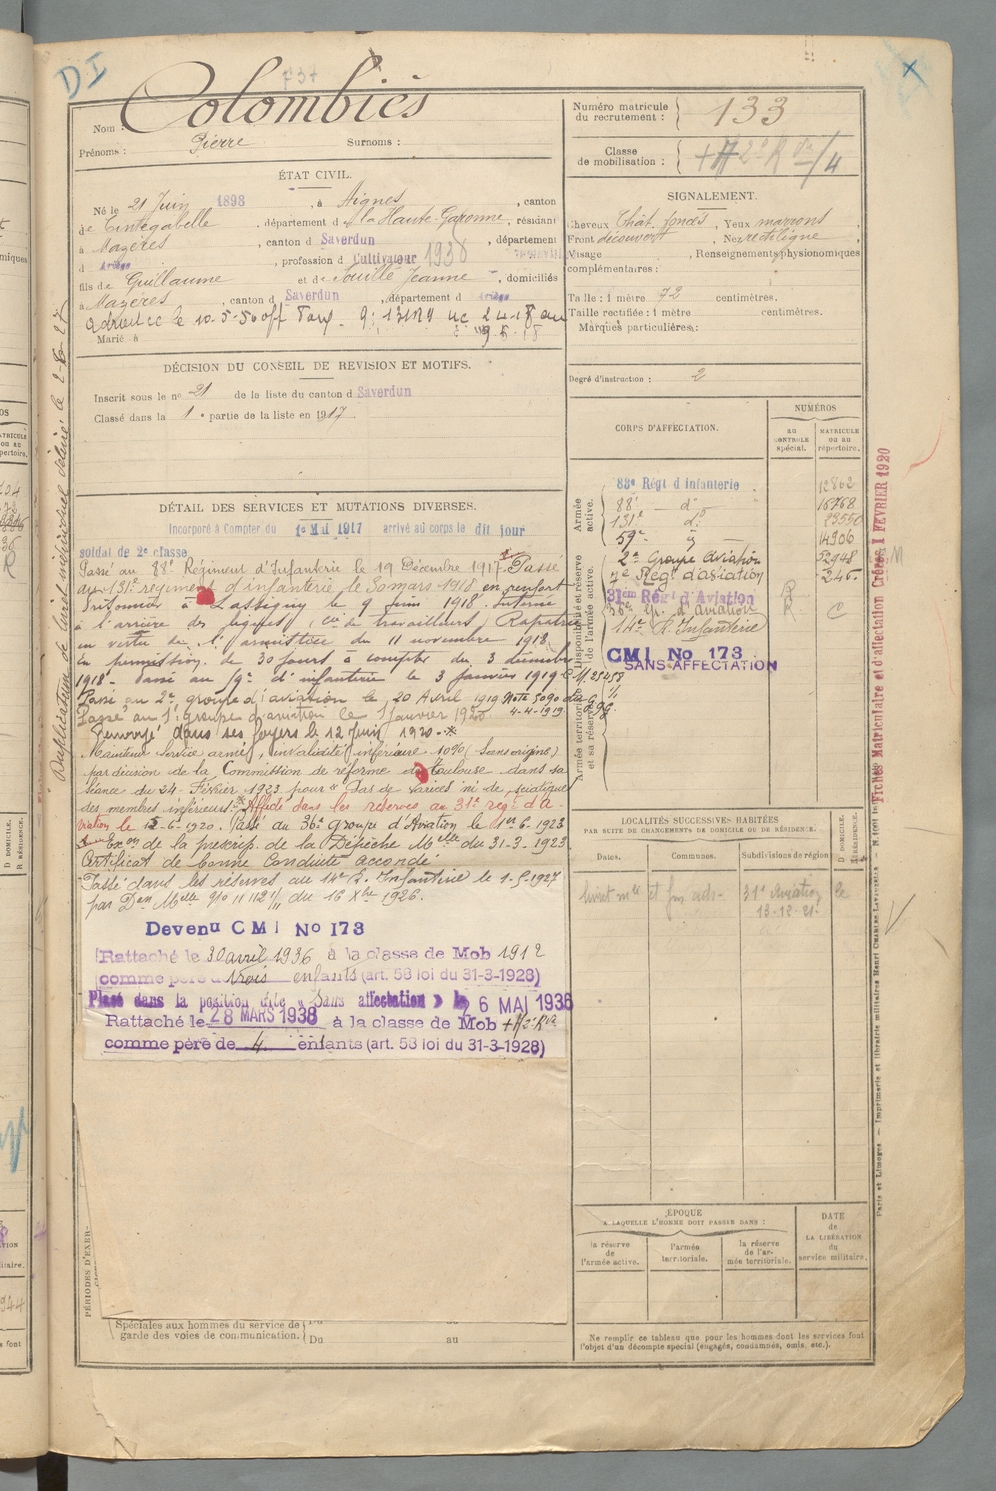 DI
Colombiès
Nom :
Prénoms : Pierre Surnoms :
ÉTAT CIVIL.
Né le 21 Juin 1898, à Aignes, canton
de Cintegabelle, département de la Haute-Garonne, résidant
à Mazères, canton d Saverdun, département
d Ariège, profession d Cultivateur 1938
fils de Guillaume et de Jeanne, domiciliés
à Mazères, canton d Saverdun, département d Ariège
le 10-5-50
Marié à
DÉCISION DU CONSEIL DE REVISION ET MOTIFS.
Inscrit sous le nº 21 de la liste du canton d Saverdun
Classé dans la 1e partie de la liste en 1917
DÉTAIL DES SERVICES ET MUTATIONS DIVERSES.
Incorporé à Compter du 1er Mai 1917 arrivé au corps le dit jour
soldat de 2e classe
Passé au 88e Régiment d'Infanterie le 19 Décembre 1917. Passé
au 131e régiment d'infanterie le 30 mars 1918 en renfort
Prisonnier à Lassigny le 9 juin 1918. Interné
à l'arrière des lignes (Cie de travailleurs) Rapatrié
en vertu de l'armistice du 11 novembre 1918.
En permission de 30 jours à compter du 3 décembre
1918. Passé au 9e d'infanterie le 3 janvier 1919
Passé au 2e groupe d'aviation le 20 Avril 1919 Note 5090 du
Passé au 1e groupe d'aviation le 1 Janvier 1920 4-4-1919
Renvoyé dans ses foyers le 12 Juin 1920 *
Maintenu service armé, invalidité inférieure 10% (Sans origine)
par décision de la Commission de réforme de Toulouse dans sa
séance du 24 Février 1923 pour "Pas de varices ni de sciatique
des membres inférieurs. * Affecté dans les réserves au 31e rég. d'a
viation le 15-6-1920. Passé au 36e groupe d'Aviation le 1er-6-1923
Exon de la prescrip. de la Dépêche Melle du 31-3-1923
Certificat de bonne Conduite accordé
Passé dans les réserves au 14e R. Infanterie le 1-5-1927
par Don Melle 910 11112 1/11 du 16 Xbre 1926.
Devenu CMI No 173
Rattaché le 30 avril 1936 à la classe de Mob 1912
comme père de trois enfants (art. 58 loi du 31-3-1928)
Placé dans la position dite « Sans affectation » le 26 MAI 1936
Rattaché le 28 MARS 1938 à la classe de Mob
comme père de 4 enfants (art. 58 loi du 31-3-1928)
PÉRIODES D'EXER-
Spéciales aux hommes du service de
garde des voies de communication.
Du
Du au
Duplicata de livret individuel délivré le 2-6-27
Numéro matricule
du recrutement : 133
Classe
de mobilisation :
SIGNALEMENT.
Cheveux Chât. foncés, Yeux marrons
Front découvert, Nez rectiligne
Visage, Renseignements physionomiques
complémentaires :
Taille : 1 mètre 72 centimètres.
Taille rectifiée : 1 mètre centimètres.
Marques particulières :
Degré d'instruction : 2
CORPS D'AFFECTATION.
NUMÉROS
AU CONTRÔLE spécial.
MATRICULE ou au répertoire.
Armée active.
83e Régt d'Infanterie 12862
88e dº 15768
131e dº
59e 14906
Disponibilité et réserve de l'armée active.
2e Groupe Aviation 52948
Rég. d'aviation
31em Rég d'Aviation R
36e Gr. d'aviation R C
14e R. Infanterie
CMI No 173
SANS AFFECTATION
Armée territoriale et sa réserve
LOCALITÉS SUCCESSIVES HABITÉES
PAR SUITE DE CHANGEMENTS DE DOMICILE OU DE RÉSIDENCE.
D DOMICILE.
R RÉSIDENCE.
Dates.
Communes.
Subdivisions de région
livret mle et 31e Aviation
13-12-21.
ÉPOQUE
A LAQUELLE L'HOMME DOIT PASSER DANS :
la réserve de l'armée active.
l'armée territoriale.
la réserve de l'armée territoriale.
DATE de LA LIBÉRATION du service militaire.
Ne remplir ce tableau que pour les hommes dont les services font
l'objet d'un décompte spécial (engagés, condamnés, omis, etc.).
Fiches Matriculaire et d'affectation Créées 1 FEVRIER 1920
Paris et Limoges. — Imprimerie et librairie militaires Henri CHARLES-LAVAUZELLE